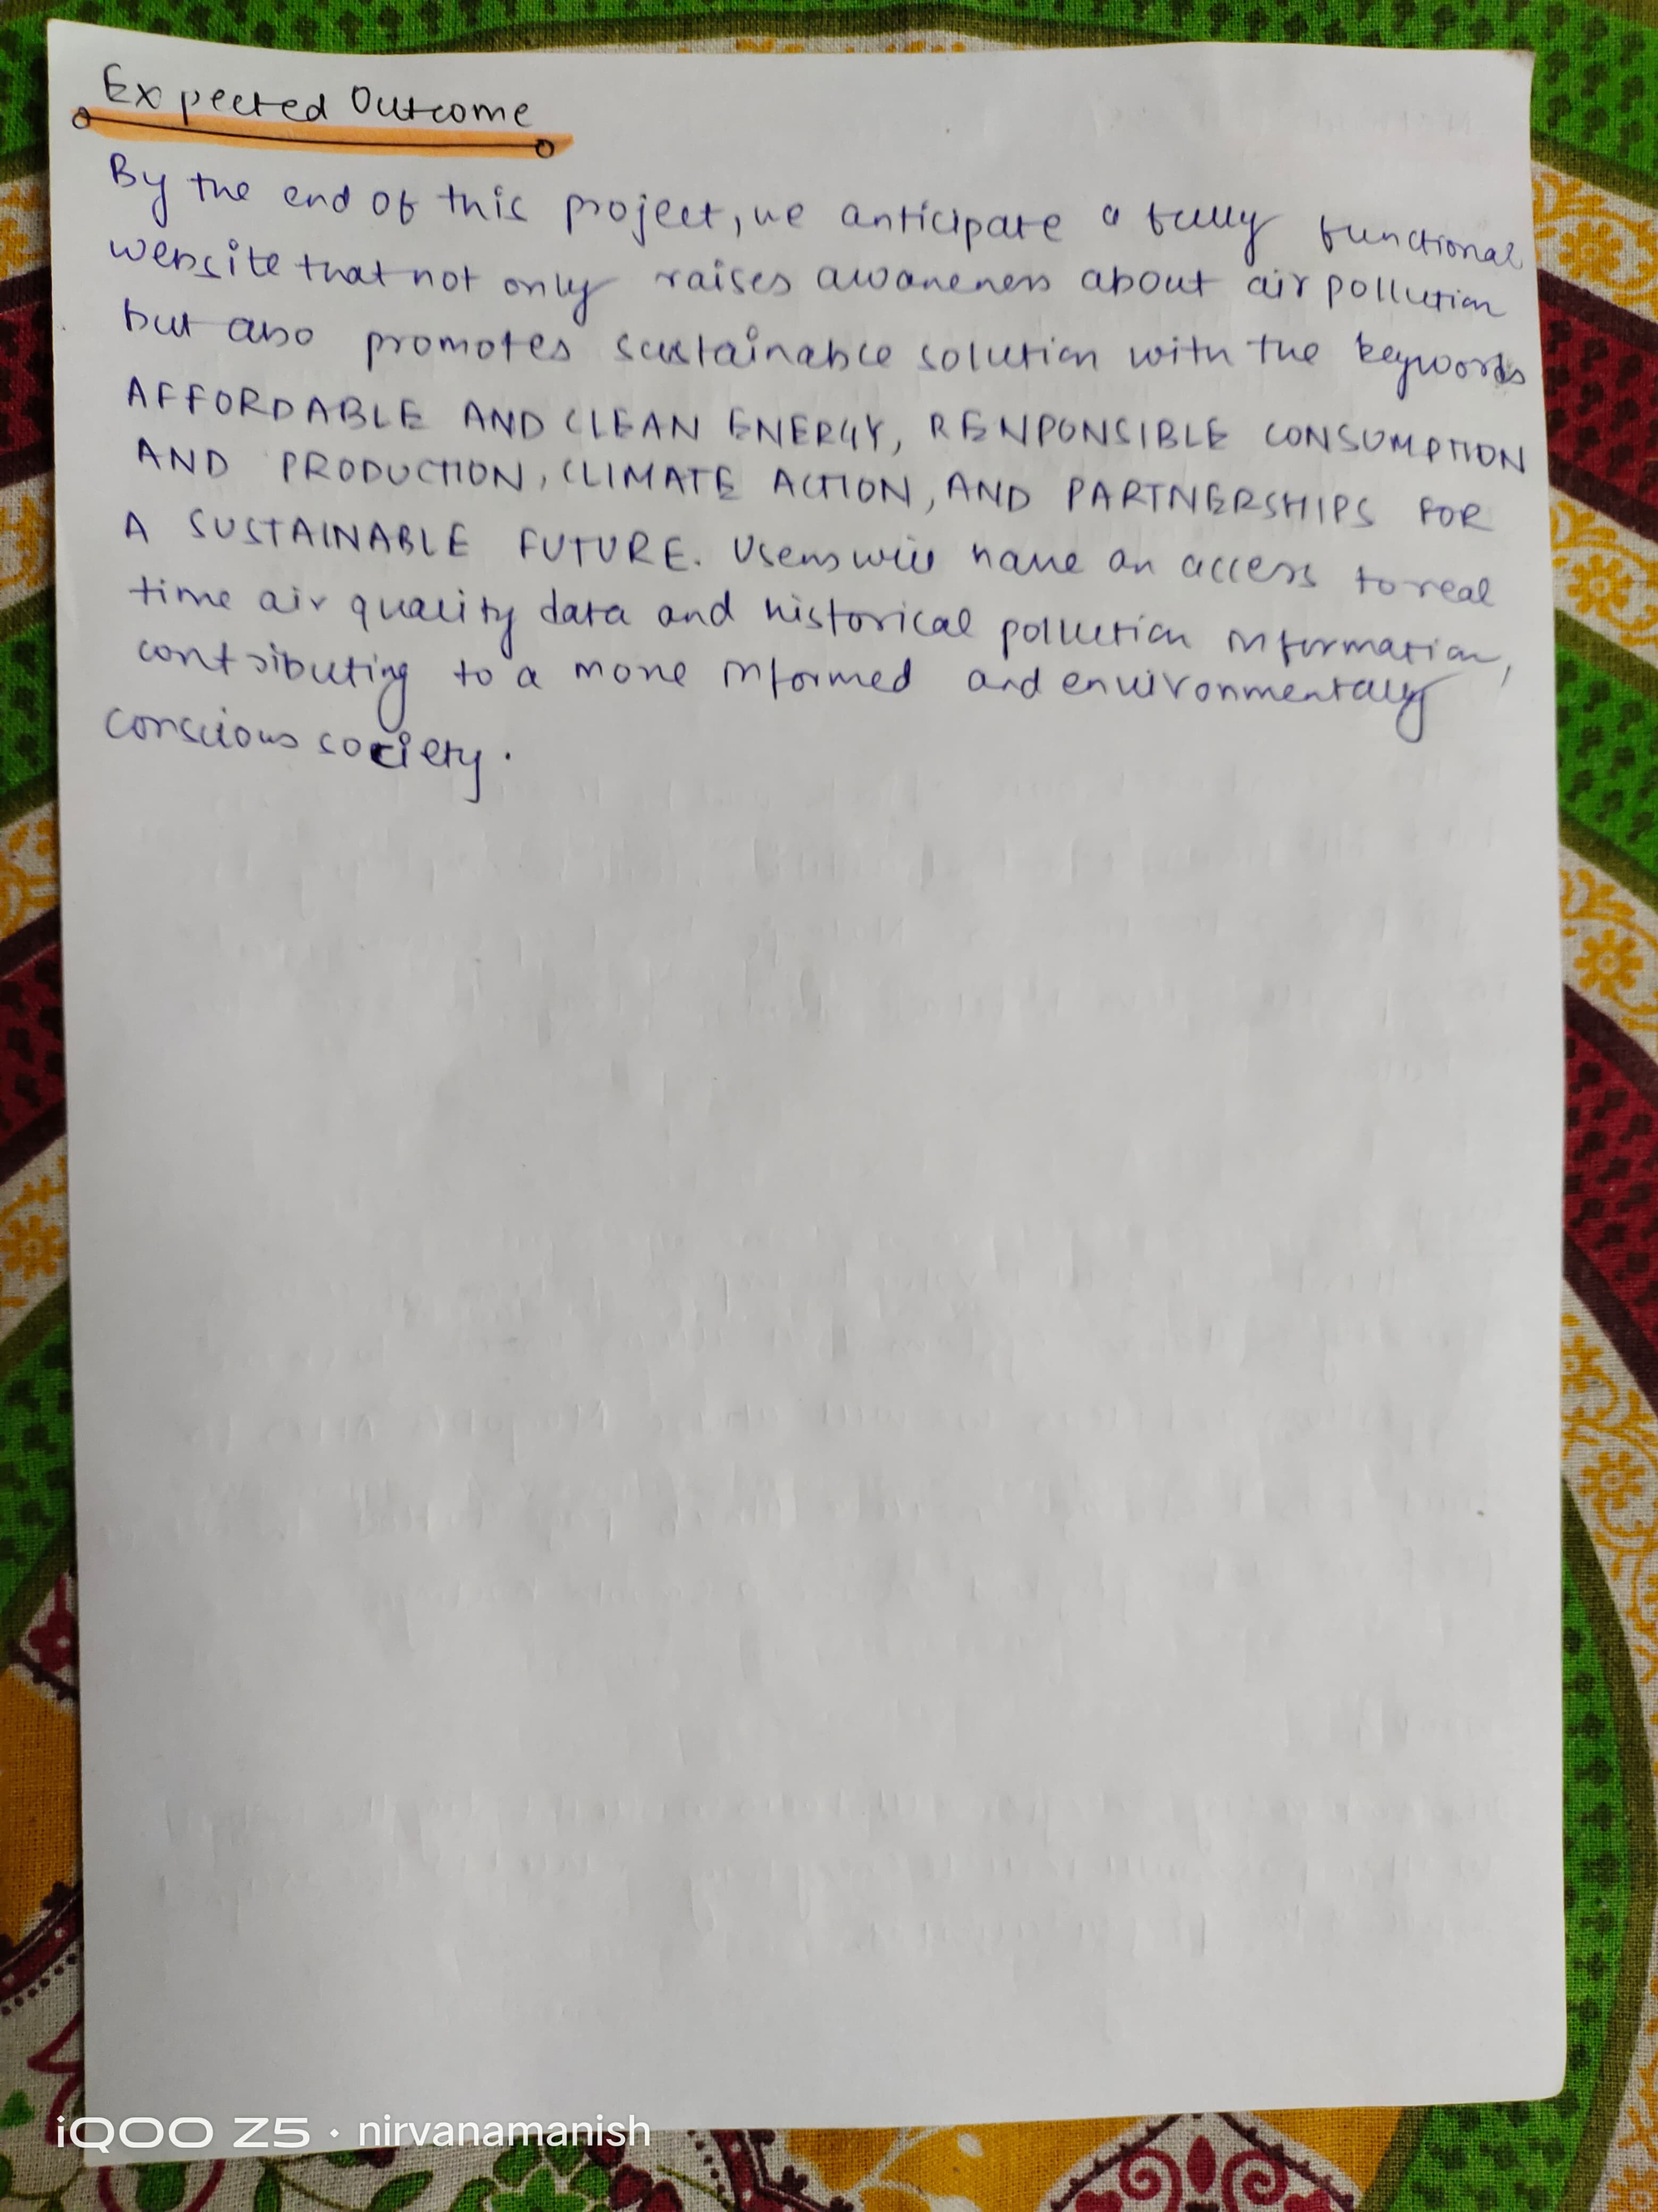 Expected Outcome
By the end of this project, we anticipate a fully functional
website that not only raises awareness about air pollution
but also promotes sustainable solution with the keywords
AFFORDABLE AND CLEAN ENERGY, RENPONSIBLE CONSUMPTION
AND PRODUCTION, CLIMATE ACTION, AND PARTNERSHIPS FOR
A SUSTAINABLE FUTURE. Users will have an access to real
time air quality data and historical pollution information,
contributing to a more informed and environmentally
conscious society.
iQOO Z5 · nirvanamanish